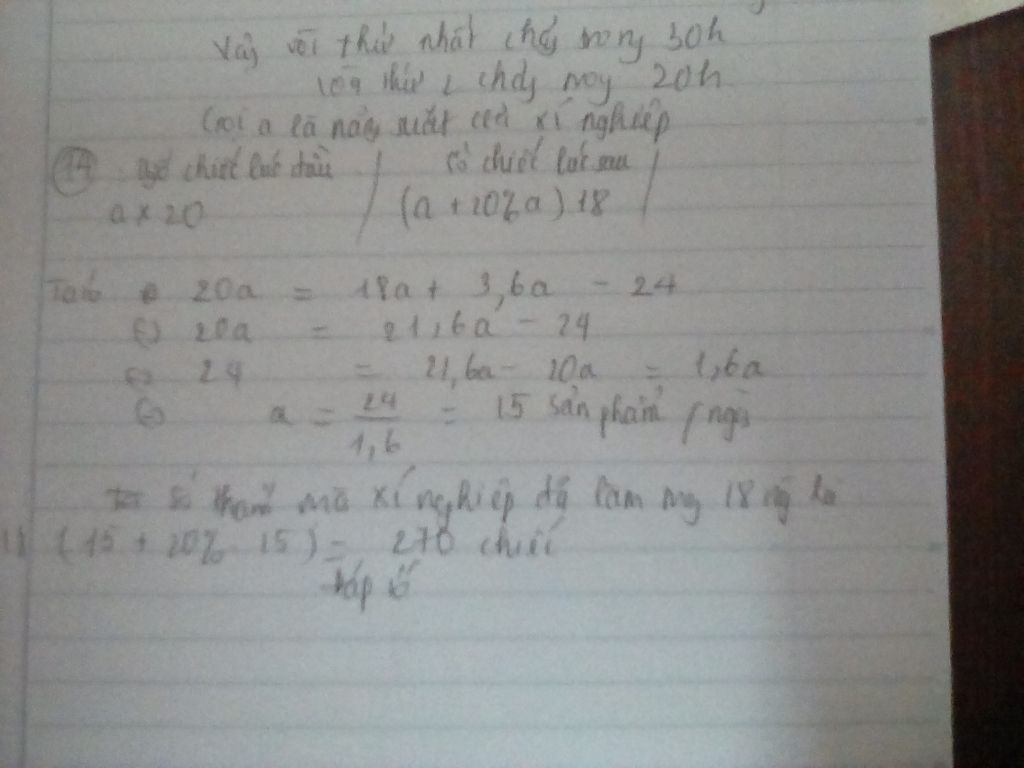 Vậy vòi thứ nhất chảy trong 30h
vòi thứ 2 chảy trong 20h
Gọi a là năng suất của xí nghiệp
14 số chiếc lúc đầu / số chiếc lúc sau /
a x 20 (a + 20% a) 18
Ta có 20a = 18a + 3,6a - 24
(=) 20a = 21,6a - 24
(=) 24 = 21,6a - 20a = 1,6a
(=) a = 24/1,6 = 15 sản phẩm / ngày
số thảm mà xí nghiệp đã làm 18 ngày là
18 (15 + 20% 15) = 270 chiếc